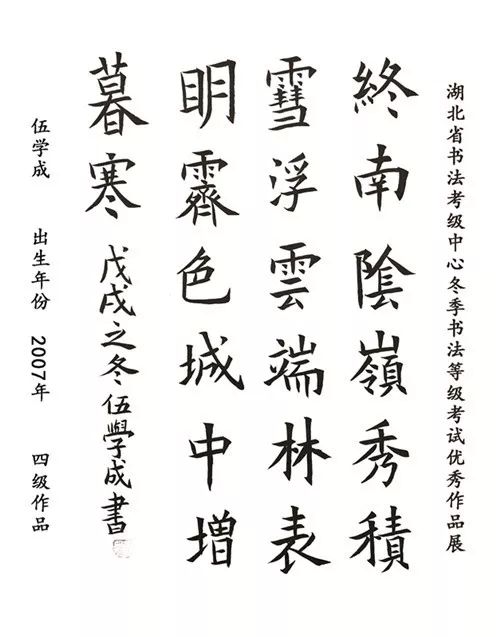 湖北省书法考级中心冬季书法等级考试优秀作品展
終南陰嶺秀積
雪浮雲端林表
明霽色城中增
暮寒
戊戌之冬伍學成書
伍学成 出生年份 2007年 四级作品